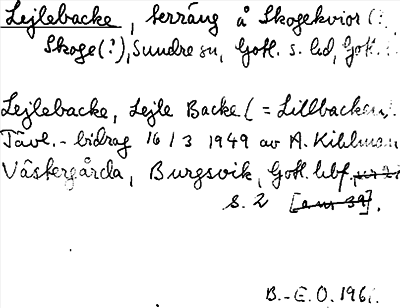 Lejlebacke, terräng å Skogekvior (:
Skoge(?), Sundre sn, Gotl. s. hd, Gotl.
Lejlebacke, Lejle Backe (= Lillbacken).
Tävl.-bidrag 16/3 1949 av A. Kihlman
Västergårda, Burgsvik, Gotl. hbf.
s. 2 [a nr 39].
B.-E. O. 196